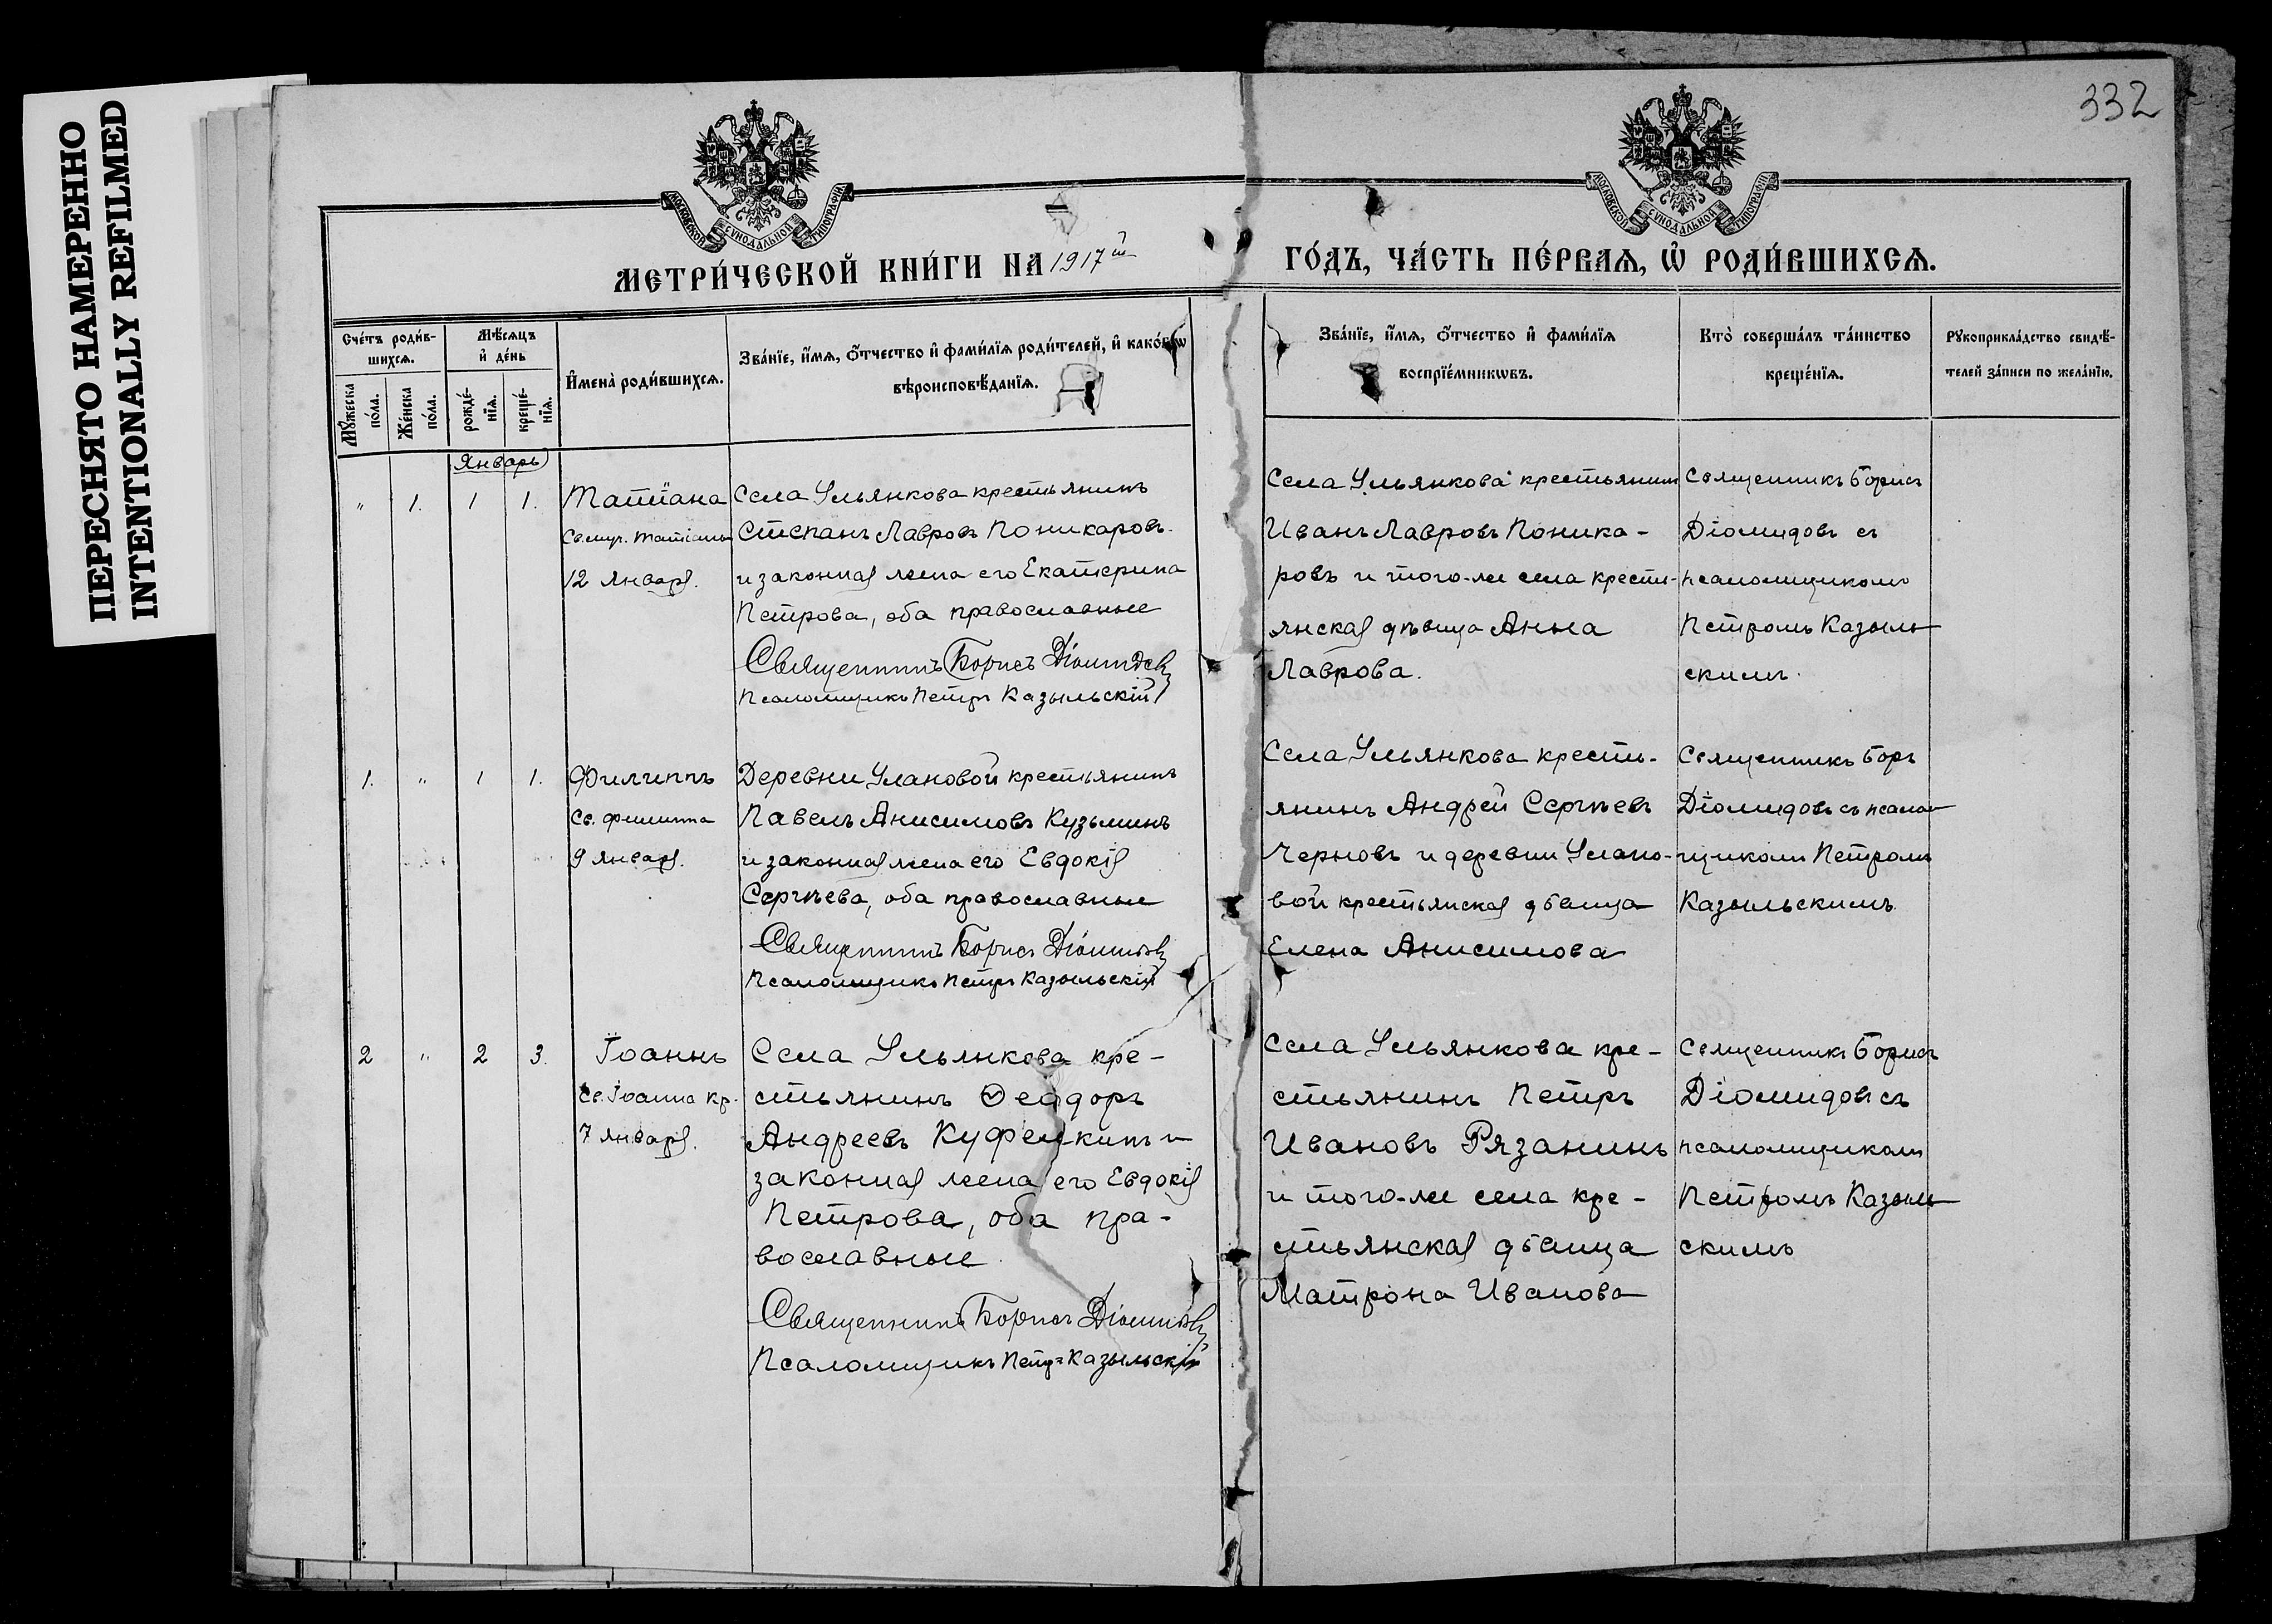 ПЕРЕСНЯТО НАМЕРЕННО
INTENTIONALLY REFILMED
332
МОСКОВСКОЙ СѴНОДАЛЬНОЙ ТИПОГРАФІИ
МОСКОВСКОЙ СѴНОДАЛЬНОЙ ТИПОГРАФІИ
МЕТРИ́ЧЕСКОЙ КНИ́ГИ НА 1917й
ГО́ДЪ, ЧА́СТЬ ПЕ́РВАѦ, Ѡ҆ РОДИ́ВШИХСѦ.
Сче́тъ роди́в-
шихсѧ.
Мꙋ́жеска
по́ла.
Же́нска
по́ла.
Мѣ́сѧцъ
и҆ де́нь
рожде́-
нїѧ.
креще́-
нїѧ.
И҆мена̀ роди́вшихсѧ.
Зва́нїе, и҆́мѧ, ѻ҆́тчество и҆ фами́лїѧ роди́телей, и҆ како́гѡ
вѣроисповѣ́данїѧ.
Зва́нїе, и҆́мѧ, ѻ҆́тчество и҆ фами́лїѧ
воспрїе́мникѡвъ.
Кто̀ соверша́лъ та́инство
креще́нїѧ.
Рꙋкоприкла́дство свидѣ́-
телей за́писи по жела́нїю.
Январь
" 1. 1 1.
Татіана
Св. муч. Татіаны
12 января.
Села Ульянкова крестьянинъ
Степанъ Лавровъ Поникаровъ
и законная жена его Екатерина
Петрова, оба православные
Священникъ Борисъ Діомидовъ
Псаломщикъ Петръ Казыльскій
Села Ульянкова крестьянинъ
Иванъ Лавровъ Поника-
ровъ и того-же села кресть-
янская дѣвица Анна
Лаврова.
Священникъ Борисъ
Діомидовъ съ
псаломщикомъ
Петромъ Казыль
скимъ.
1. " 1 1.
Филиппъ
Св. Филиппа
9 января.
Деревни Улановой крестьянинъ
Павелъ Анисимовъ Кузьминъ
и законная жена его Евдокія
Сергѣева, оба православные
Священникъ Борисъ Діомидовъ
Псаломщикъ Петръ Казыльскій
Села Ульянкова кресть-
янинъ Андрей Сергѣевъ
Черновъ и деревни Улано-
вой крестьянская дѣвица
Елена Анисимова
Священникъ Боръ
Діомидовъ съ псалом
щикомъ Петромъ
Казыльскимъ
2 " 2 3.
Іоаннъ
Св. Іоанна Кр.
7 января.
Села Ульянкова кре-
стьянинъ Ѳеодоръ
Андреевъ Куфелкинъ и
законная жена его Евдокія
Петрова, оба пра-
вославные
Священникъ Борисъ Діомидовъ
Псаломщикъ Петръ Казыльскій
Села Ульянкова кре-
стьянинъ Петръ
Ивановъ Рязанинъ
и того-же села кре-
стьянская дѣвица
Матрона Иванова
Священникъ Борисъ
Діомидовъ съ
псаломщикомъ
Петромъ Казыль
скимъ